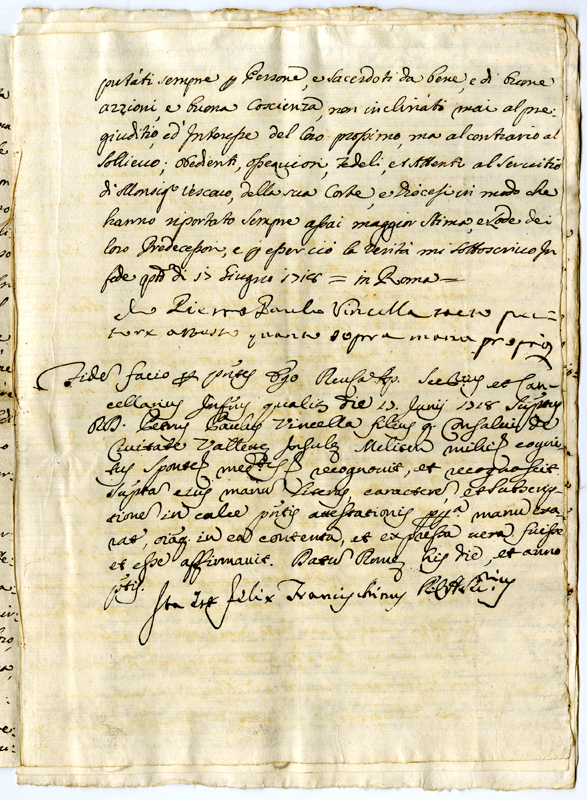 portati sempre p Persone, e sacerdoti da bene, e di buone
azzioni, e buona Coscienza, non inclinati mai al pre-
giuditio, ed Interesse del loro prossimo, ma al contrario al
sollievo; obedienti, ossequiosi, Fedeli, et Attenti al Servitio
di Monsigr Vescovo, della sua Corte, e Diocesi in modo che
hanno riportato sempre assai maggior stima, e Lode dei
loro Predecessori, e p esser ciò la verità mi sottoscrivo In
fede qto di 13 Giugno 1718 = in Roma =
Io Pietro Paulo Vincella
attesto quanto sopra mano propria
Fidem facio p pntes Ego Rev. Ap. et Can-
cellarius Infrus qualit die 13 Junij 1718 Suptus
RD. Petrus Paulus Vincella filius q Consalui de
Civitate Valletta Insula Meliten mihi cognitus
sponte recognovit, et recognoscit
supta eius manus literas, caracteres, et subscrip-
tiones in calce pntis attestationis manu exa-
rat, oiaq in ea contenta, et expressa vera fuisse
et esse affirmavit. Datum Roma his die, et anno
pntis.
Ita est Felix Francischinus